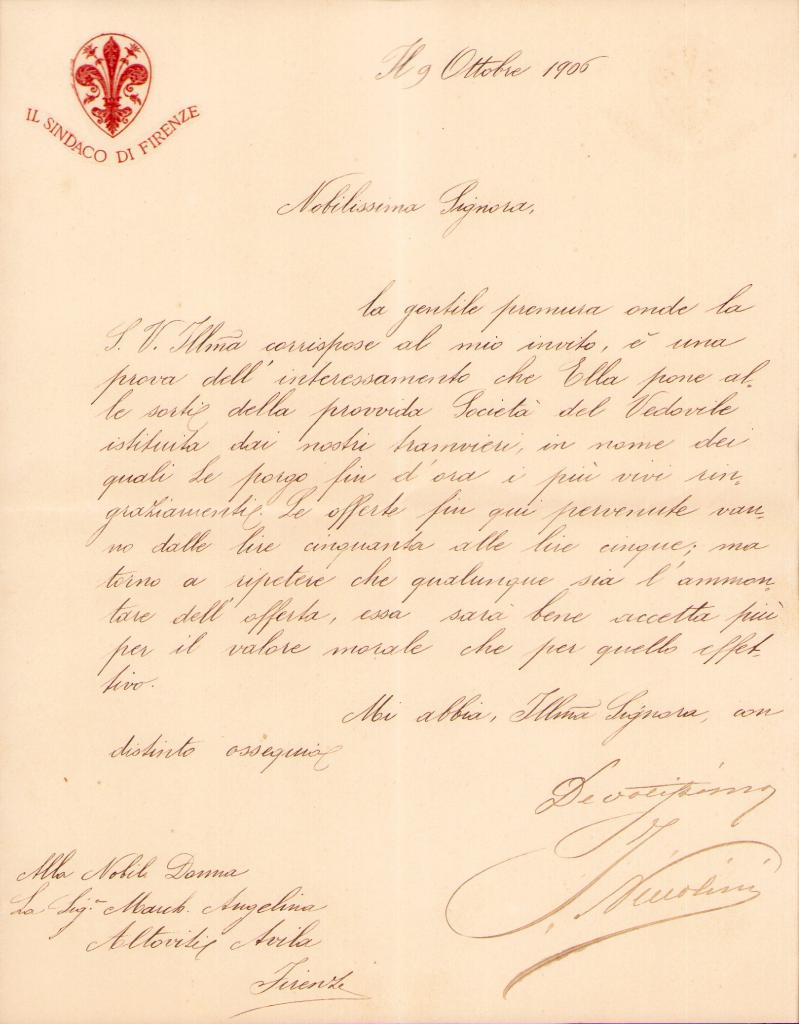 IL SINDACO DI FIRENZE
Il 9 Ottobre 1906
Nobilissima Signora,
la gentile premura onde la
S. V. Illma corrispose al mio invito, è una
prova dell'interessamento che Ella pone al-
le sorti della provvida Società del Vedovile
istituita dai nostri tramvieri, in nome dei
quali Le porgo fin d'ora i più vivi rin-
graziamenti. Le offerte fin qui pervenute van-
no dalle lire cinquanta alle lire cinque; ma
torno a ripetere che qualunque sia l'ammon-
tare dell'offerta, essa sarà bene accetta più
per il valore morale che per quello effet-
tivo.
Mi abbia, Illma Signora, con
distinto ossequio
Devotissimo
I. Niccolini
Alla Nobile Donna
La Sigra March. Angelina
Altoviti Avila
Firenze